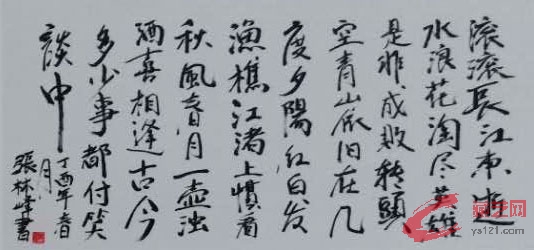 滚滚長江東逝
水浪花淘尽英雄
是非成敗转頭
空青山依旧在几
度夕陽红白发
漁樵江渚上慣看
秋風春月一壶浊
酒喜相逢古今
多少事都付笑
談中
丁酉年春
月
張林峰書
藏芝网
ys121.com